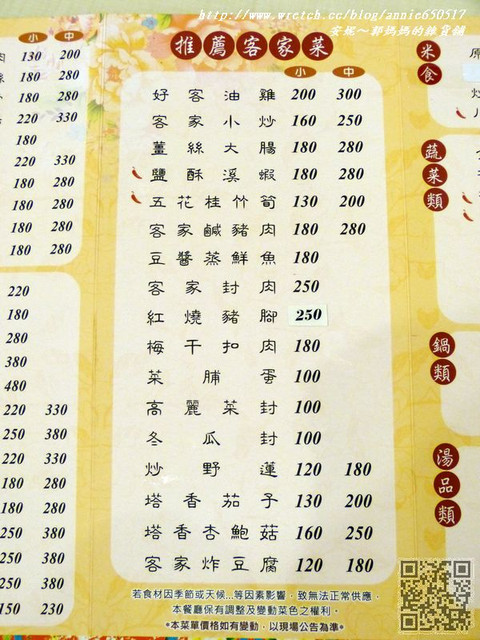 http://www.wretch.cc/blog/annie650517
安妮~郭媽媽的雜貨舖
小 中
肉 130 200
180 280
180 280
220 330
180
220 330
180 280
180 280
180 280
220
180
280
380
480
220 330
250 380
220 330
180 280
180 280
250 380
250 380
250 380
150 230
推薦客家菜
小 中
好客油雞 200 300
客家小炒 160 250
薑絲大腸 180 280
鹽酥溪蝦 180 280
五花桂竹筍 130 200
客家鹹豬肉 180 280
豆醬蒸鮮魚 180
客家封肉 250
紅燒豬腳 250
梅干扣肉 180
菜脯蛋 100
高麗菜封 100
冬瓜封 100
炒野蓮 120 180
塔香茄子 130 200
塔香杏鮑菇 160 250
客家炸豆腐 120 180
若食材因季節或天候...等因素影響，致無法正常供應，
本餐廳保有調整及變動菜色之權利。
*本菜單價格如有變動，以現場公告為準*
米食
蔬菜類
鍋類
湯品類